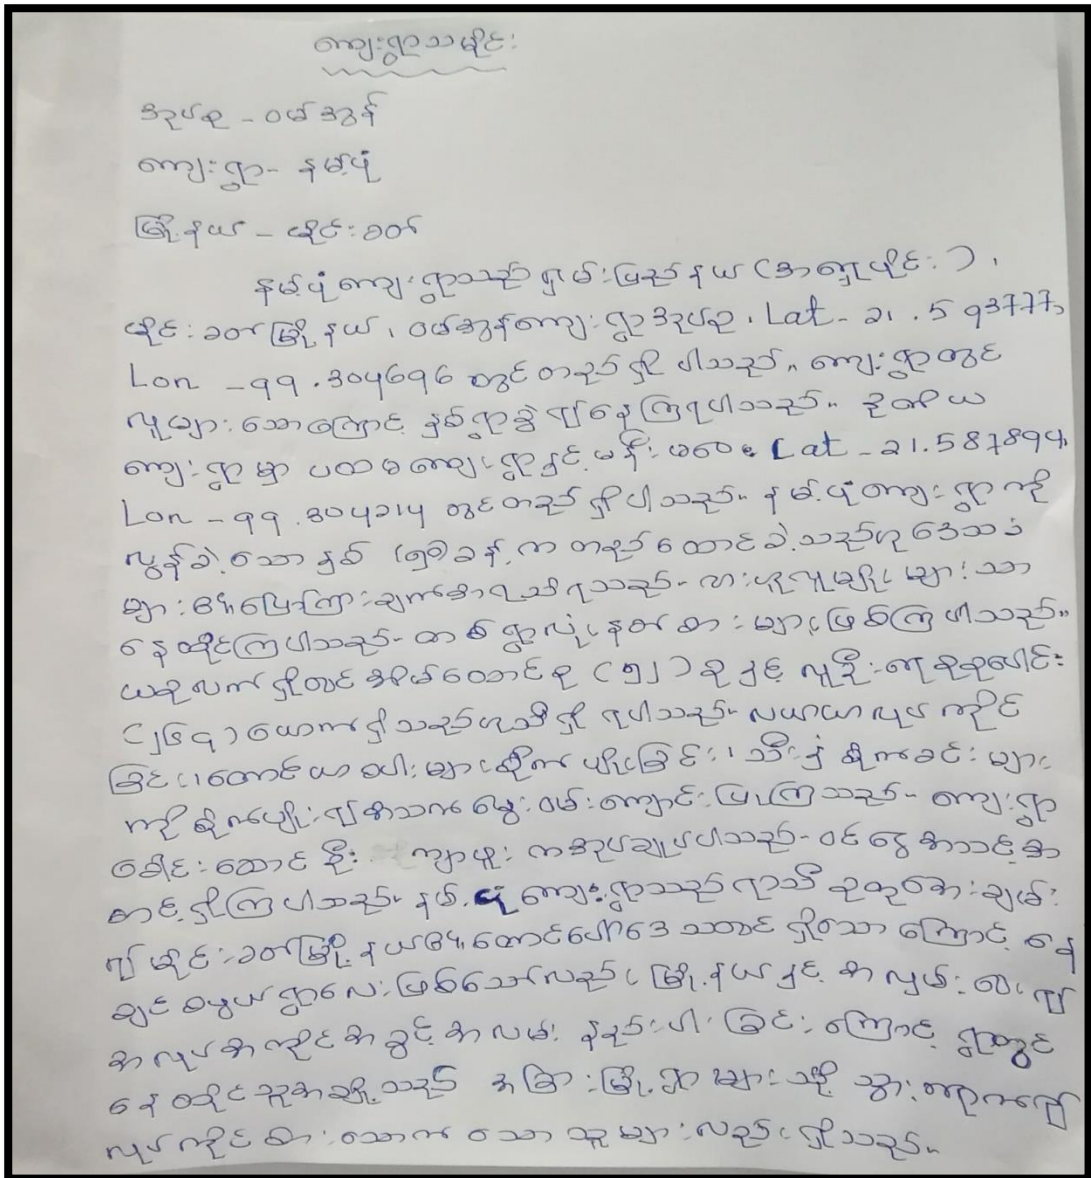 ကျေးရွာသမိုင်း
အုပ်စု - ဝမ်အွန်
ကျေးရွာ - နမ့်ပုံ
မြို့နယ် - မိုင်းခတ်
နမ့်ပုံကျေးရွာသည် ရှမ်းပြည်နယ် (အရှေ့ပိုင်း)၊
မိုင်းခတ်မြို့နယ်၊ ဝမ်အွန်ကျေးရွာအုပ်စု၊ Lat - ၁၂.၅၉၃၇၇၃
Lon - ၉၉.၃၀၄၆၉၆ တွင် တည်ရှိပါသည်။ ကျေးရွာတွင်
လူများသောကြောင့် နှစ်ရွာခွဲ၍ နေကြရပါသည်။ ဒုတိယ
ကျေးရွာမှာ ပထမကျေးရွာနှင့် မနီးမဝေး Lat - ၂၁.၅၈၇၈၉၄
Lon - ၉၉.၃၀၄၂၁၄ တွင် တည်ရှိပါသည်။ နမ့်ပုံကျေးရွာကို
လွန်ခဲ့သောနှစ် (၅၀) ခန့်က တည်ထောင်ခဲ့သည်ဟု ဒေသခံ
များ၏ ပြောကြားချက်အရ သိရသည်။ လားဟူလူမျိုးများသာ
နေထိုင်ကြပါသည်။ တစ်ရွာလုံး နတ်စားများ ဖြစ်ကြပါသည်။
ယခုလက်ရှိတွင် အိမ်ထောင်စု (၅၂) စုနှင့် လူဦးရေ စုစုပေါင်း
(၂၆၄) ယောက်ရှိသည်ဟု သိရှိရပါသည်။ လယ်ယာလုပ်ကိုင်
ခြင်း၊ တောင်ယာစပါးများ စိုက်ပျိုးခြင်း၊ သီးနှံစိုက်ခင်းများ
ကို စိုက်ပျိုး၍ အသက်မွေးဝမ်းကျောင်းပြုကြသည်။ ကျေးရွာ
ခေါင်းဆောင် ဦး ကျာဖူး က အုပ်ချုပ်ပါသည်။ ဝင်ငွေ အသင့်အ
တင့် ရှိကြပါသည်။ နမ့်ပုံကျေးရွာသည် ရာသီဥတုအေးချမ်း
၍ မိုင်းခတ်မြို့နယ်၏ တောင်ပေါ်ဒေသတွင် ရှိသောကြောင့် နေ
ချင်စဖွယ် ရွာလေး ဖြစ်သော်လည်း မြို့နယ်နှင့် အလှမ်းဝေး၍
အလုပ်အကိုင်အခွင့်အလမ်း နည်းပါးခြင်းကြောင့် ရွာတွင်
နေထိုင်သူအချို့သည် အခြားမြို့ရွာများသို့ သွားရောက်၍
လုပ်ကိုင်စားသောက်သော သူများလည်း ရှိသည်။